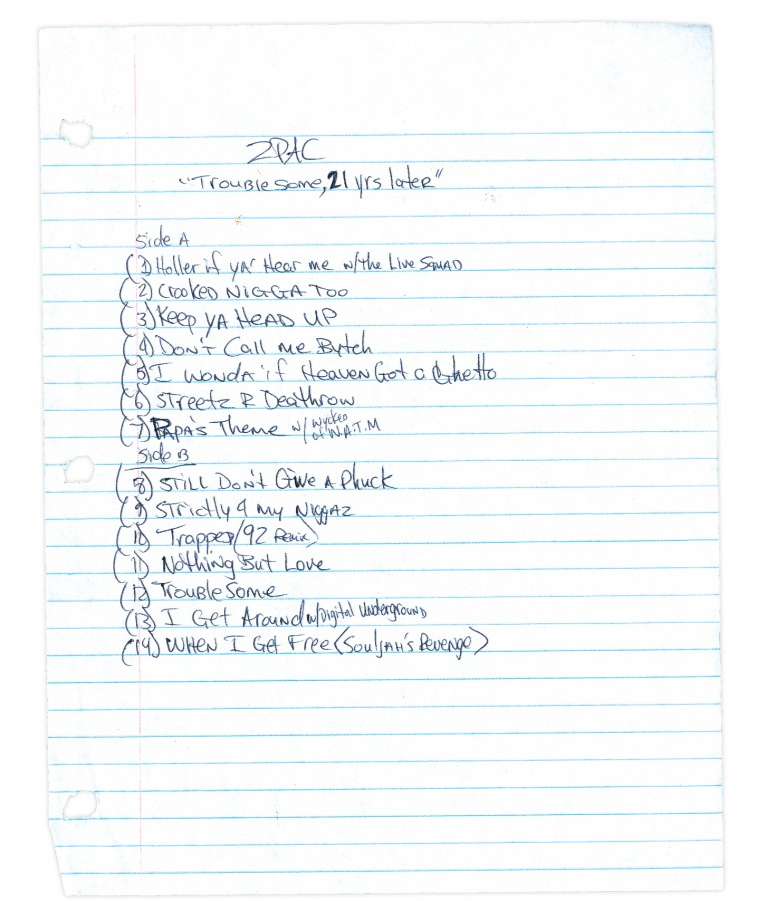 2PAC
"Trouble some, 21 yrs later"
Side A
(1) Holler if ya' Hear me w/the Live SQUAD
(2) CROOKED NIGGA TOO
(3) Keep YA HEAD UP
(4) DON'T Call me Bytch
(5) I WONDA if Heaven Got a Ghetto
(6) Streetz R Deathrow
(7) PAPA'S Theme w/ wycked of W.A.T.M
Side B
(8) STILL DON'T Give A Phuck
(9) Strictly 4 my Niggaz
(10) Trapped/92 Remix)
(11) Nothing But Love
(12) Trouble Some
(13) I Get Around w/Digital Underground
(14) WHEN I Get Free (SoulJAH'S Revenge)